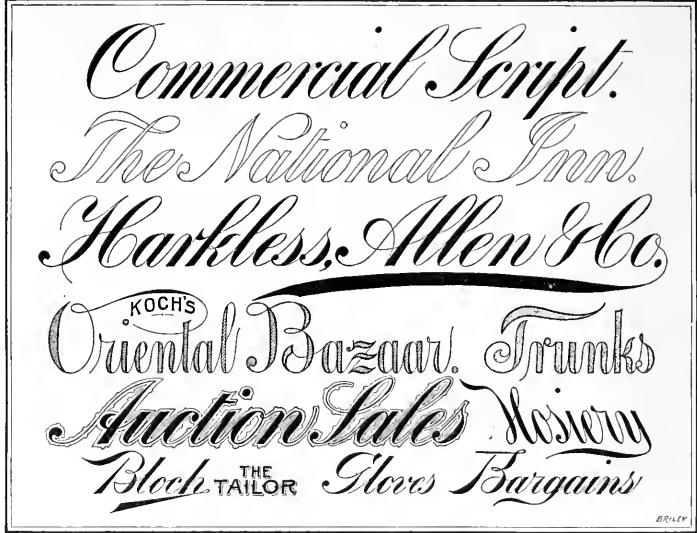 Commercial Script.
The National Inn.
Harkless, Allen & Co.
KOCH'S
Oriental Bazaar. Trunks
Auction Sales Hosiery
Bloch THE TAILOR Gloves Bargains
BRILEY